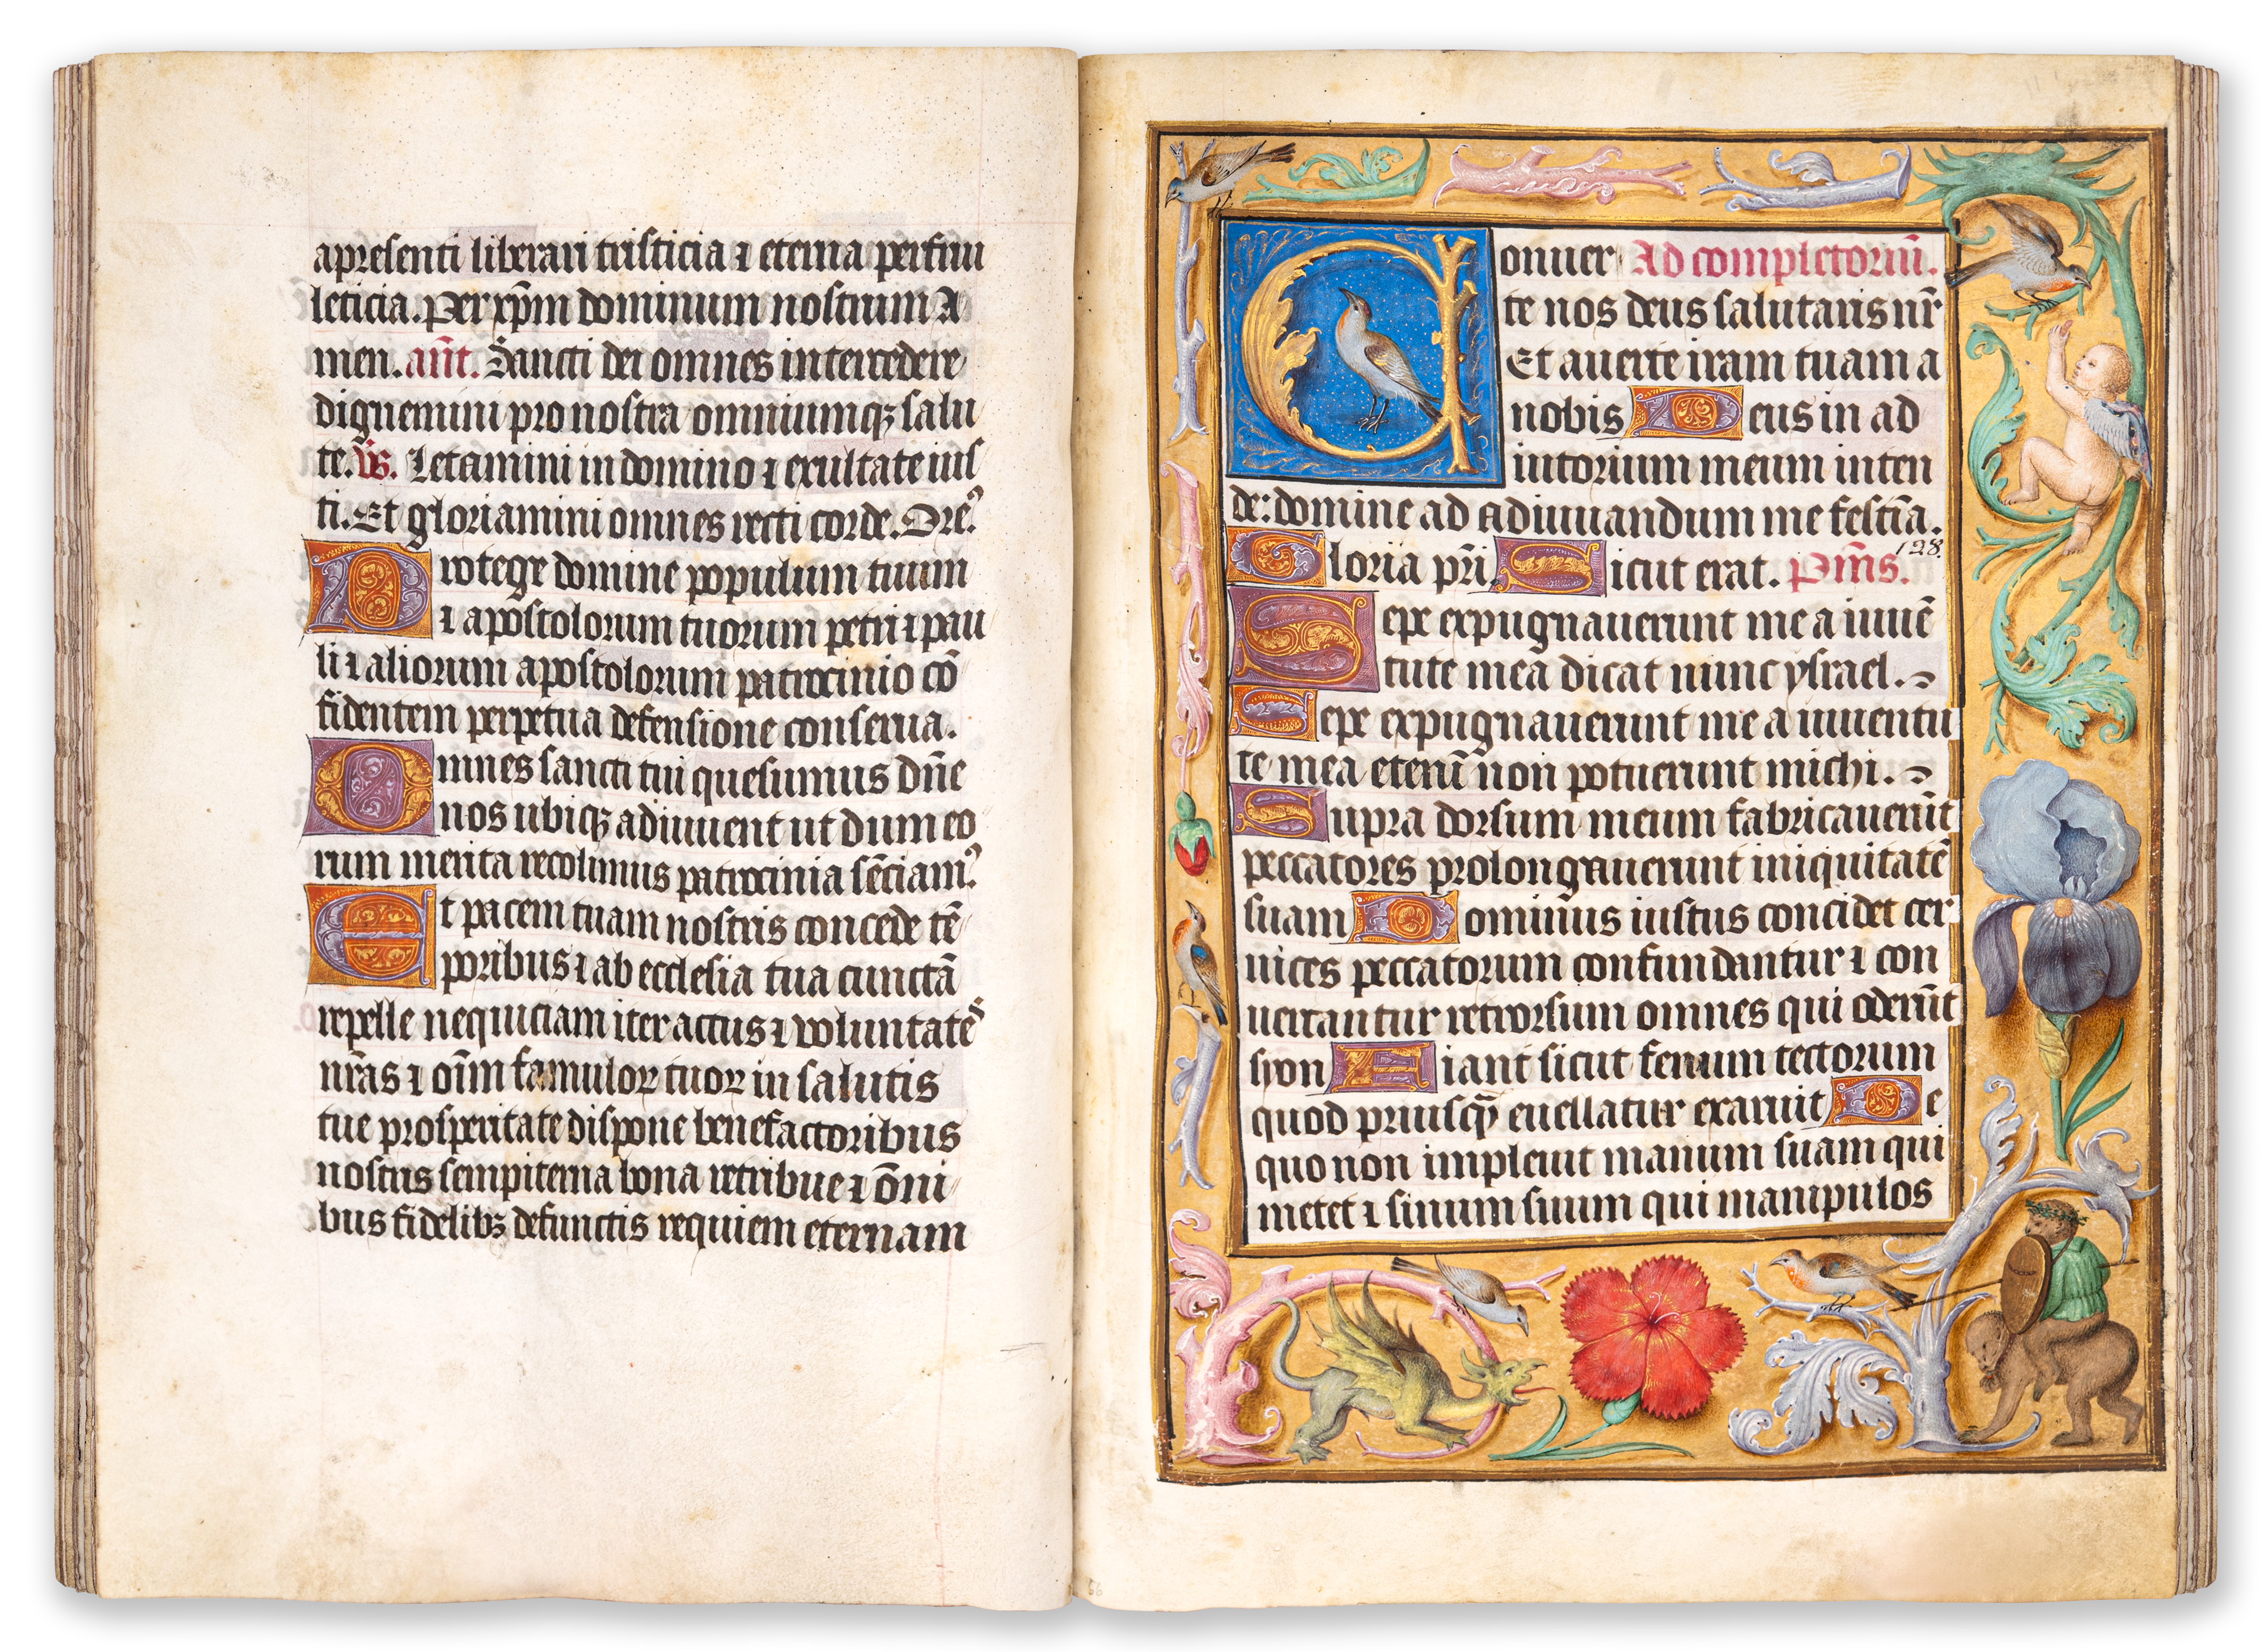 apresenti liberari tristicia ⁊ eterna perfrui
leticia. Per xp̄m dominum nostrum A
men. an̄t. Sancti dei omnes intercedere
dignemini pro nostra omniumqꝫ salu
te. v̄s. Letamini in domino ⁊ exultate ius
ti. Et gloriamini omnes recti corde. Ore᷒.
Protege domine populum tuum
⁊ apostolorum tuorum petri ⁊ pau
li ⁊ aliorum apostolorum patrocinio cō
fidentem perpetua defensione conserua.
Omnes sancti tui quesumus dn̄e
nos ubiqꝫ adiuuent ut dum eo
rum merita recolimus patrocinia sēciam᷒.
Et pacem tuam nostris concede tē
poribus ⁊ ab ecclesia tua cunctā
repelle nequiciam iter actus ⁊ voluntates
nr̄as ⁊ oīm famuloꝝ tuoꝝ in salutis
tue prosperitate dispone benefactoribus
nostris sempiterna bona retribue ⁊ ōni
bus fidelibꝫ defunctis requiem eternam
Conuer Ad completoriū.
te nos deus salutaris nr̄
Et auerte iram tuam a
nobis Deus in ad
iutorium meum inten
de: domine ad adiuuandum me festīa.
128.
Gloria pr̄i Sicut erat. Pm̄s.
Sepe expugnauerunt me a iuuē
tute mea dicat nunc ysrael.
Sepe expugnauerunt me a iuuentu
te mea etenī non potuerunt michi.
Supra dorsum meum fabricauerūt
peccatores prolongauerunt iniquitatē
suam Dominus iustus concidet cer
uices peccatorum confundantur ⁊ con
uertantur retrorsum omnes qui oderūt
syon Fiant sicut fenum tectorum
quod priusqꝫ euellatur exaruit De
quo non impleuit manum suam qui
metet ⁊ sinum suum qui manipulos